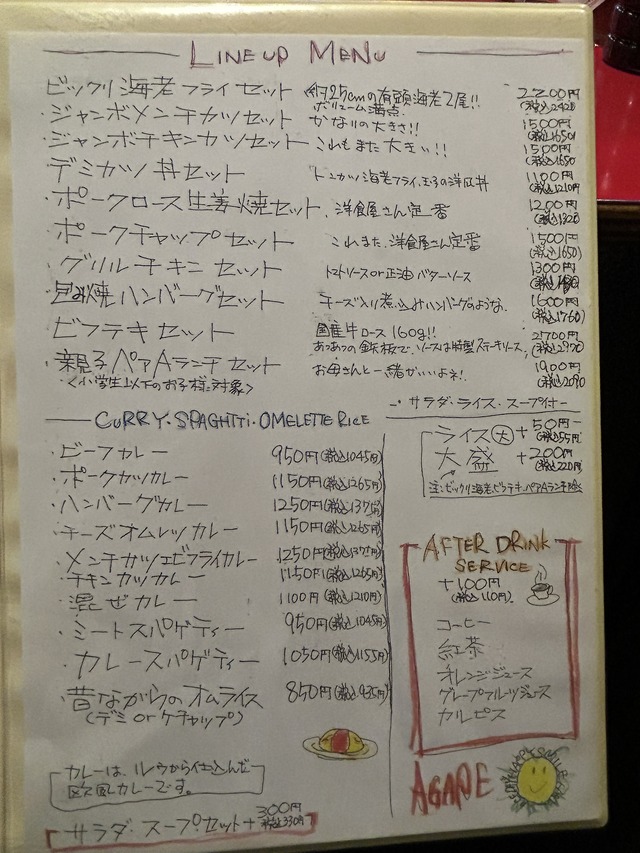 LINE UP MENU
・ビックリ海老フライセット 約25cmの有頭海老2尾!! 2200円
(税込2420)
・ジャンボメンチカツセット ボリューム満点 かなりの大きさ!! 1500円
(税込1650)
・ジャンボチキンカツセット これもまた大きい!! 1500円
(税込1650
・デミカツ丼セット トンカツ海老フライ、玉子の洋風丼 1100円
(税込1210円
・ポークロース生姜焼セット、洋食屋さん定番 1200円
(税込1320
・ポークチャップセット これまた、洋食屋さん定番 1500円
(税込1650)
・グリルチキンセット トマトソースor正油バターソース 1300円
・包み焼ハンバーグセット チーズ入り煮込みハンバーグのような、 1600円
(税込1760)
・ビフテキセット 国産牛ロース160g!! 2700円
あつあつの鉄板で、ソースは特製ステーキソース。 (税込2970
・親子ペアAランチセット お母さんと一緒がいいよネ! 1900円
<小学生以下のお子様対象> (税込2090
サラダ・ライス・スープ付
ライス大 +50円
(税込55円
大盛 +200円
(税込220円
注:ビックリ海老、ビフテキ、ペアAランチ除
CURRY・SPAGHTTi・OMELETTE RiCE
・ビーフカレー 950円(税込1045円)
・ポークカツカレー 1150円(税込1265円)
・ハンバーグカレー 1250円(税込1375)
・チーズオムレツカレー 1150円(税込1265円)
・メンチカツエビフライカレー 1250円(税込1375)
・チキンカツカレー 1150円(税込1265円)
・混ぜカレー 1100円(税込1210円)
・ミートスパゲティー 950円(税込1045円)
・カレースパゲティー 1050円(税込1155円)
・昔ながらのオムライス 850円(税込935円)
(デミorケチャップ)
カレーは、ルウから仕込んだ
欧風カレーです。
サラダ・スープセット+300円
税込330円
AFTER DRINK
SERVICE
+100円
(税込110円)
コーヒー
紅茶
オレンジジュース
グレープフルーツジュース
カルピス
AGAPE